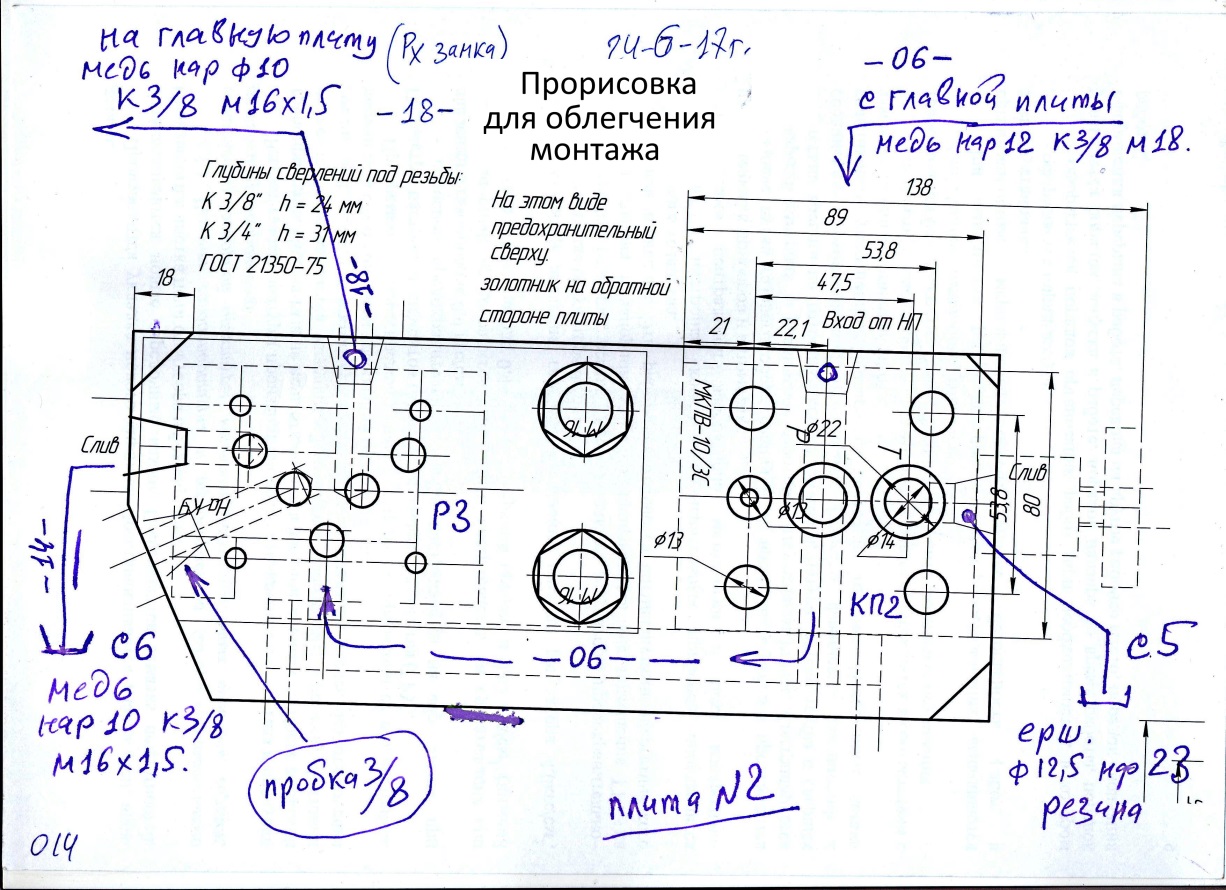 на главную плиту (Рх замка)
медь нар ф10
К 3/8 м16х1,5 -18-
24-6-17г.
-06-
с главной плиты
медь нар 12 К3/8 м18.
Прорисовка
для облегчения
монтажа
Глубины сверлений под резьбы:
К 3/8" h = 24 мм
К 3/4" h = 31 мм
ГОСТ 21350-75
На этом виде
предохранительный
сверху.
золотник на обратной
стороне плиты
138
89
53,8
47,5
18
-18-
21
22,1
Вход от НП
МКПВ-10/3С
P
ф22
T
Слив
Слив
М 16
На РУ
Р3
53,8
80
ф13
ф13
ф14
М 16
КП2
-14-
-06-
С6
с.5
медь
нар 10 К3/8
м16х1,5.
пробка 3/8
плита N2
ерш.
ф12,5 нар
резина
23
014